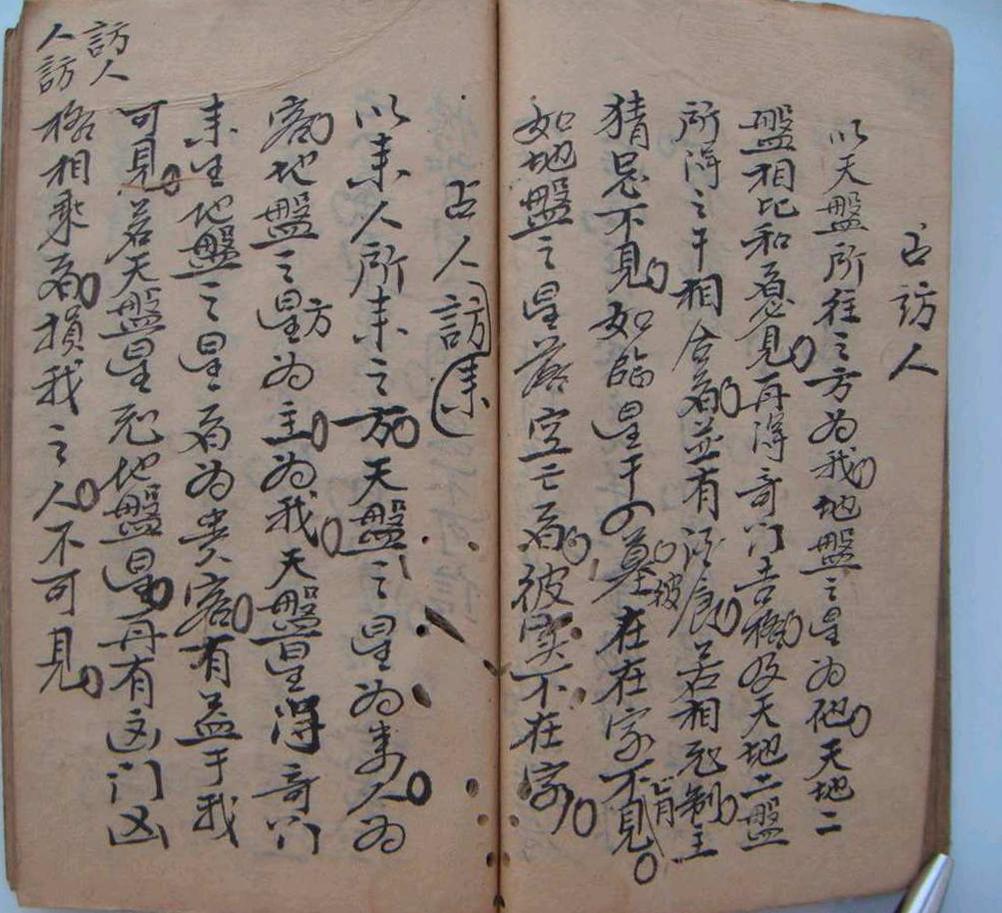 占訪人
以天盤所往之方為我地盤之星為他天地二
盤相比和者必見再得奇門吉格及天地二盤
所得之干相合者並有酒食若相克制主
猜忌不見如臨星干の墓彼在在家不肯見
如地盤之星落空亡者彼實不在家
占人訪來
以來人所來之方天盤之星為來人為
客地盤之星方為主為我天盤星得奇門
來生地盤之星者為貴客有益于我
可見若天盤星克地盤星再有凶門凶
格相乘者損我之人不可見
訪人
人訪